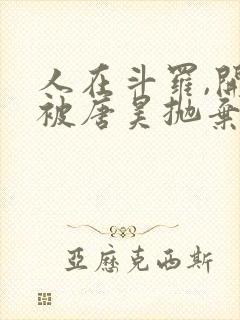 人在斗羅,開
被唐昊拋棄
亞歷克西斯